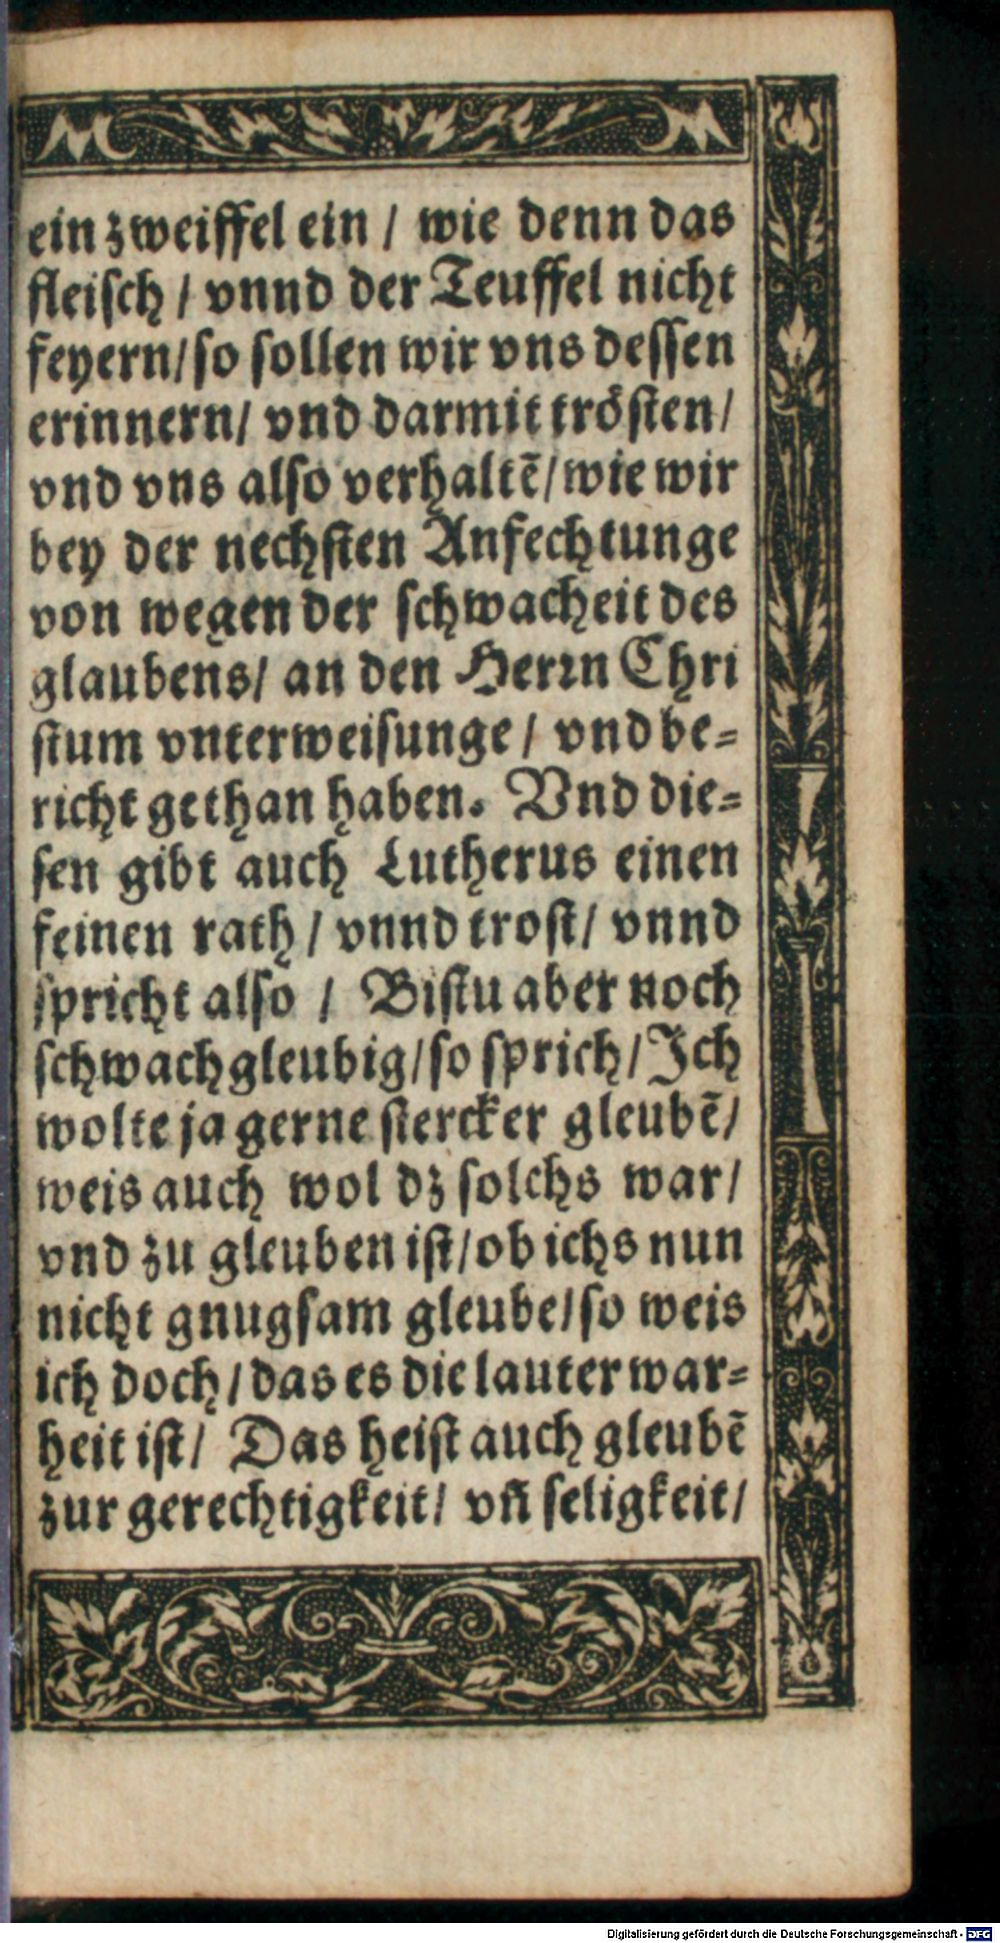 ein zweiffel ein / wie denn das
fleisch / vnnd der Teuffel nicht
feyern/ so sollen wir vns dessen
erinnern/ vnd darmit trösten/
vnd vns also verhaltē/ wie wir
bey der nechsten Anfechtunge
von wegen der schwacheit des
glaubens/ an den Herrn Chri
stum vnterweisunge / vnd be-
richt gethan haben. Vnd die-
sen gibt auch Lutherus einen
feinen rath / vnnd trost/ vnnd
spricht also / Bistu aber noch
schwachgleubig/ so sprich/ Ich
wolte ja gerne stercker gleubē/
weis auch wol dz solchs war/
vnd zu gleuben ist/ ob ichs nun
nicht gnugsam gleube/ so weis
ich doch / das es die lauter war-
heit ist/ Das heist auch gleubē
zur gerechtigkeit/ vñ seligkeit/
Digitalisierung gefördert durch die Deutsche Forschungsgemeinschaft - DFG